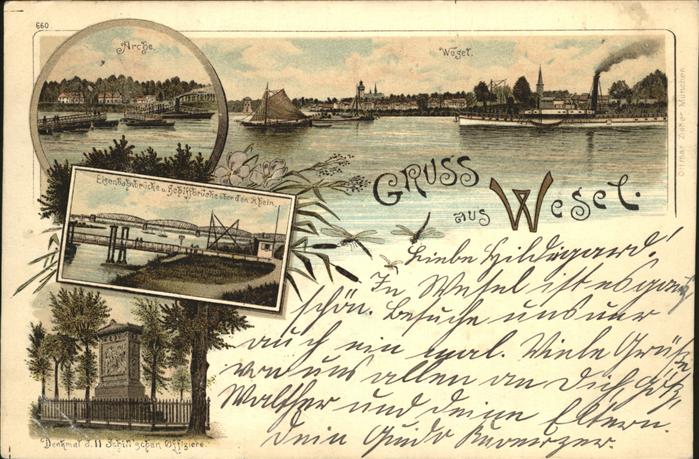 660
Arche.
Wesel.
Ottmar Zieher, München.
GRUSS
aus Wesel.
Eisenbahnbrücke u. Schiffbrücke über den Rhein.
Denkmal d. 11 Schill'schen Offiziere.
Liebe Hildegard!
In Wesel ist es ganz
schön. Besuche uns nur
auch ein mal. Viele Grüße
von uns allen an Dich, Götz,
Walther und deine Eltern.
Dein Guido